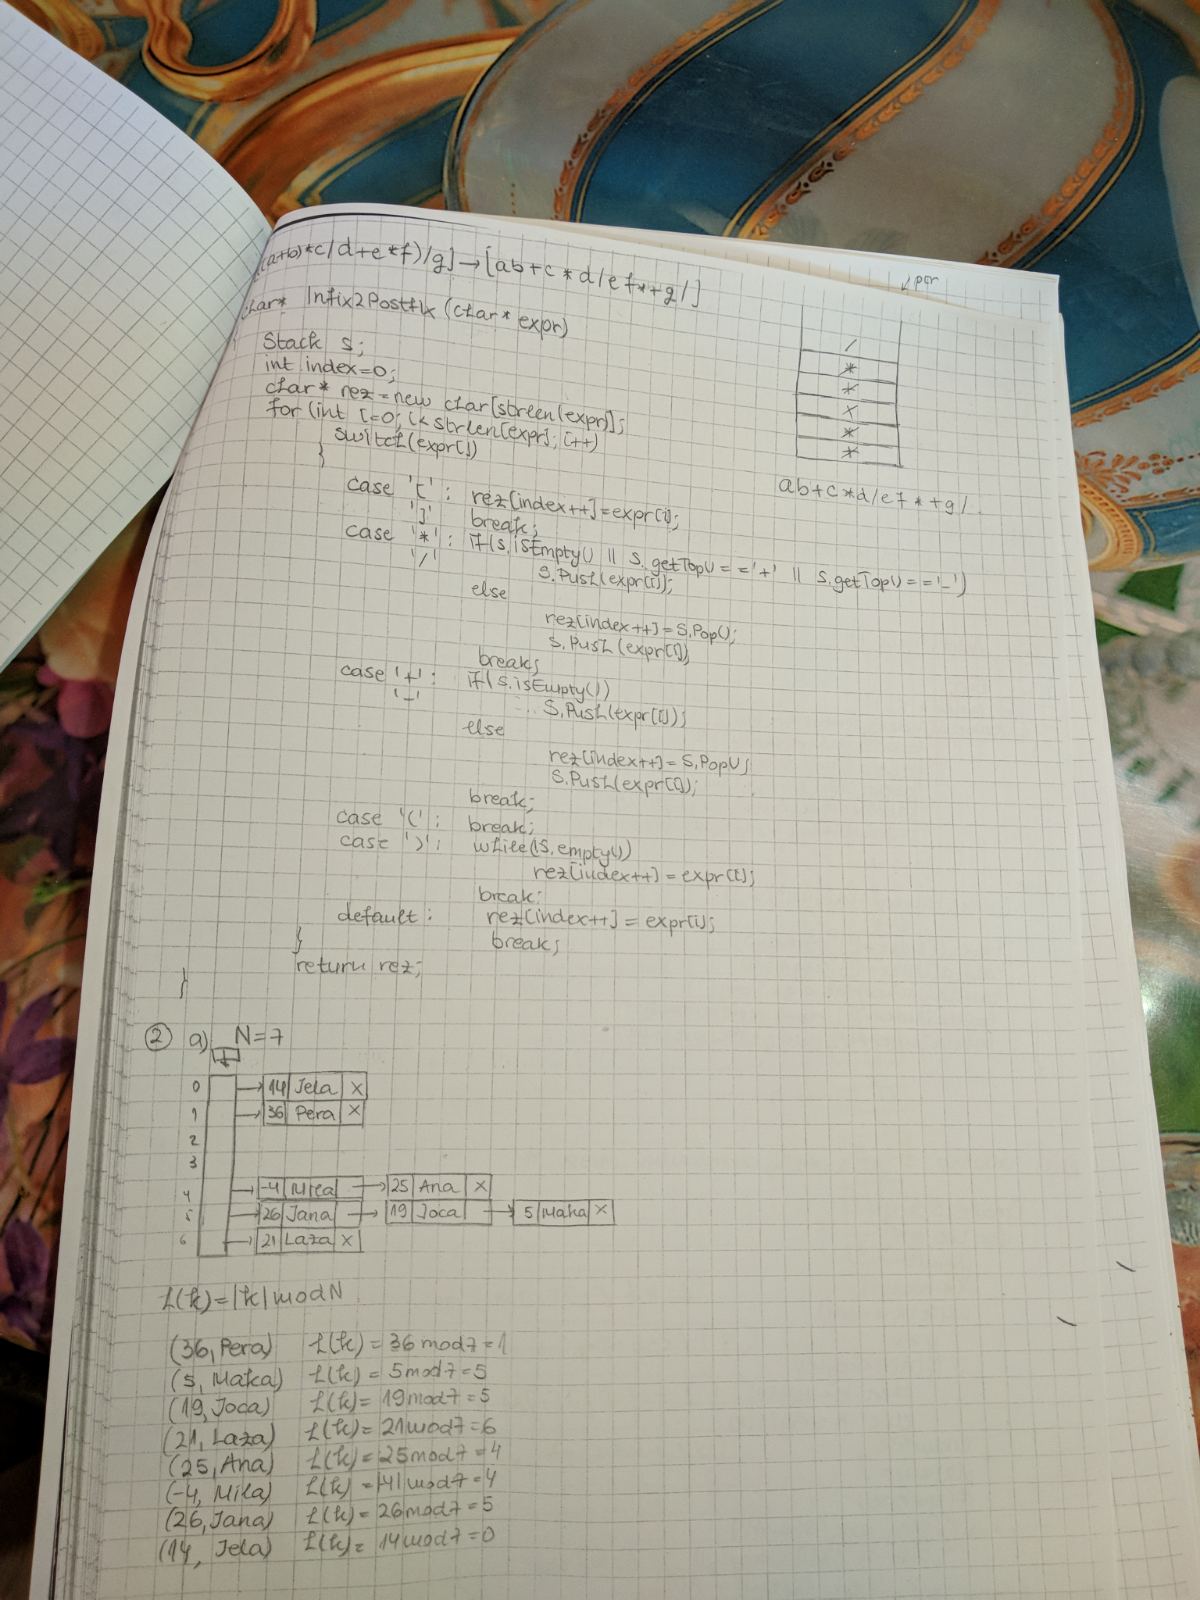 (a+b)*c/d+e*f)/g]→[ab+c*d/ef*+g/]
char* Infix2Postfix (char* expr)
Stack s;
int index=0;
char* rez=new char[strlen(expr)];
for (int i=0; i<strlen[expr]; i++)
{ switch(expr[i])
case '[': rez[index++]=expr[i];
']' break;
case '*': if(s.isEmpty() || s.getTop()=='+' || s.getTop()=='-')
'/' s.Push(expr[i]);
else
rez[index++]=s.Pop();
s.Push(expr[i]);
break;
case '+': if(s.isEmpty())
'-' s.Push(expr[i]);
else
rez[index++]=s.Pop();
s.Push(expr[i]);
break;
case '(': break;
case ')': while(!s.empty())
rez[index++]=expr[i];
break;
default: rez[index++]=expr[i];
} break;
return rez;
}
ab+c*d/ef*+g/
② a) N=7
0 14 Jela X
1 36 Pera X
2
3
4 -4 Mila 25 Ana X
5 26 Jana 19 Joca 5 Maka X
6 21 Laza X
h(k)=|k| mod N
(36, Pera) h(k)=36 mod 7=1
(5, Maka) h(k)=5 mod 7=5
(19, Joca) h(k)=19 mod 7=5
(21, Laza) h(k)=21 mod 7=6
(25, Ana) h(k)=25 mod 7=4
(-4, Mila) h(k)=|4| mod 7=4
(26, Jana) h(k)=26 mod 7=5
(14, Jela) h(k)=14 mod 7=0